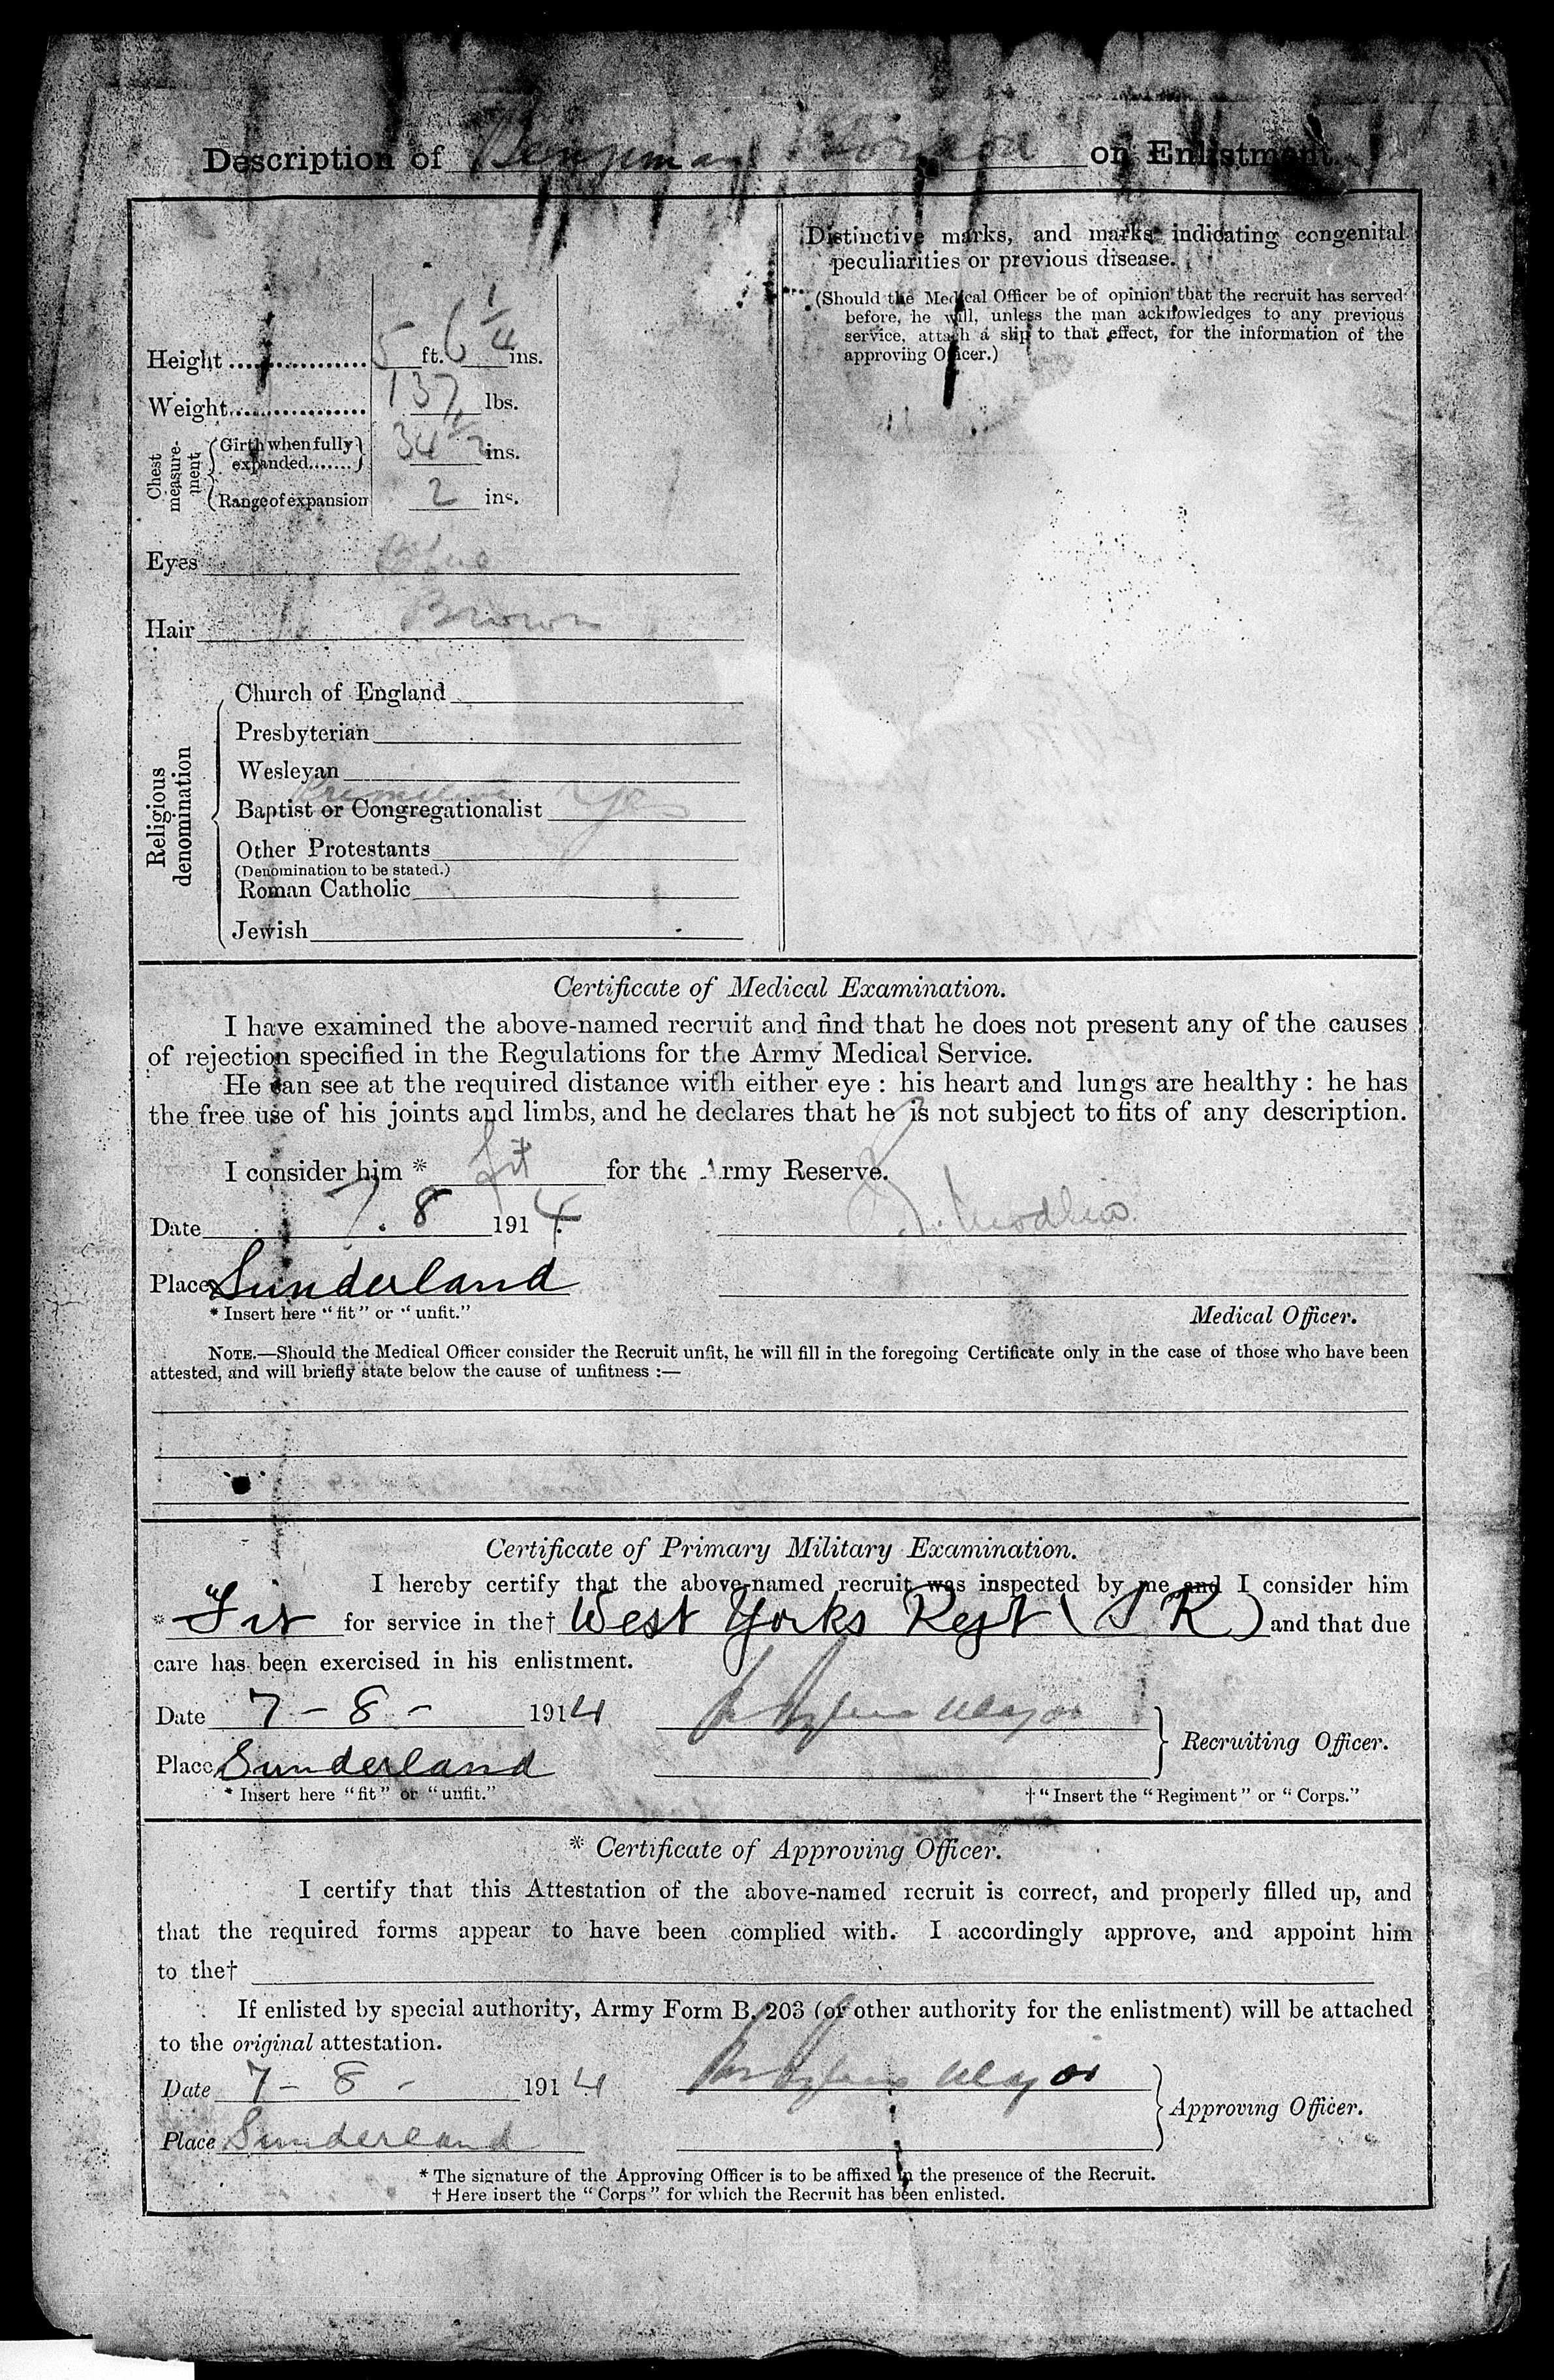 Description of Benjeman on Enlistment.
Distinctive marks, and marks indicating congenital
peculiarities or previous disease.
(Should the Medical Officer be of opinion that the recruit has served
before, he will, unless the man acknowledges to any previous
service, attach a slip to that effect, for the information of the
approving Officer.)
Height ................ 5 ft. 6 1/4 ins.
Weight.................. 137 lbs.
Chest measure-ment
Girth when fully
expanded....... 34 1/2 ins.
Range of expansion 2 ins.
Eyes Blue
Hair Brown
Religious denomination
Church of England
Presbyterian
Wesleyan
Primitive Yes
Baptist or Congregationalist
Other Protestants
(Denomination to be stated.)
Roman Catholic
Jewish
Certificate of Medical Examination.
I have examined the above-named recruit and find that he does not present any of the causes
of rejection specified in the Regulations for the Army Medical Service.
He can see at the required distance with either eye : his heart and lungs are healthy : he has
the free use of his joints and limbs, and he declares that he is not subject to fits of any description.
I consider him * fit for the Army Reserve.
Date 7. 8 1914.
Place Sunderland
* Insert here "fit" or "unfit."
Medical Officer.
NOTE.—Should the Medical Officer consider the Recruit unfit, he will fill in the foregoing Certificate only in the case of those who have been
attested, and will briefly state below the cause of unfitness :—
Certificate of Primary Military Examination.
I hereby certify that the above-named recruit was inspected by me and I consider him
* Fit for service in the† West Yorks Regt (S R) and that due
care has been exercised in his enlistment.
Date 7 - 8 - 1914 Major
Recruiting Officer.
Place Sunderland
* Insert here "fit" or "unfit."
†"Insert the "Regiment" or "Corps."
* Certificate of Approving Officer.
I certify that this Attestation of the above-named recruit is correct, and properly filled up, and
that the required forms appear to have been complied with. I accordingly approve, and appoint him
to the†
If enlisted by special authority, Army Form B. 203 (or other authority for the enlistment) will be attached
to the original attestation.
Date 7 - 8 - 1914 Major
Approving Officer.
Place Sunderland
* The signature of the Approving Officer is to be affixed in the presence of the Recruit.
† Here insert the "Corps" for which the Recruit has been enlisted.